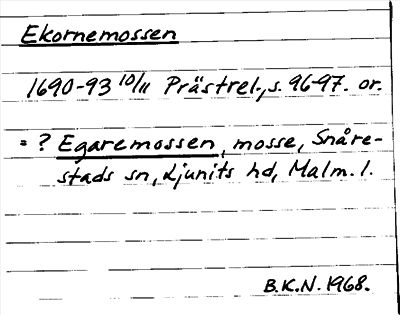 Ekornemossen
1690-93 10/11 Prästrel., s. 96-97. or.
= ? Egaremossen, mosse, Snåre-
stads sn, Ljunits hd, Malm. l.
B.K.N. 1968.